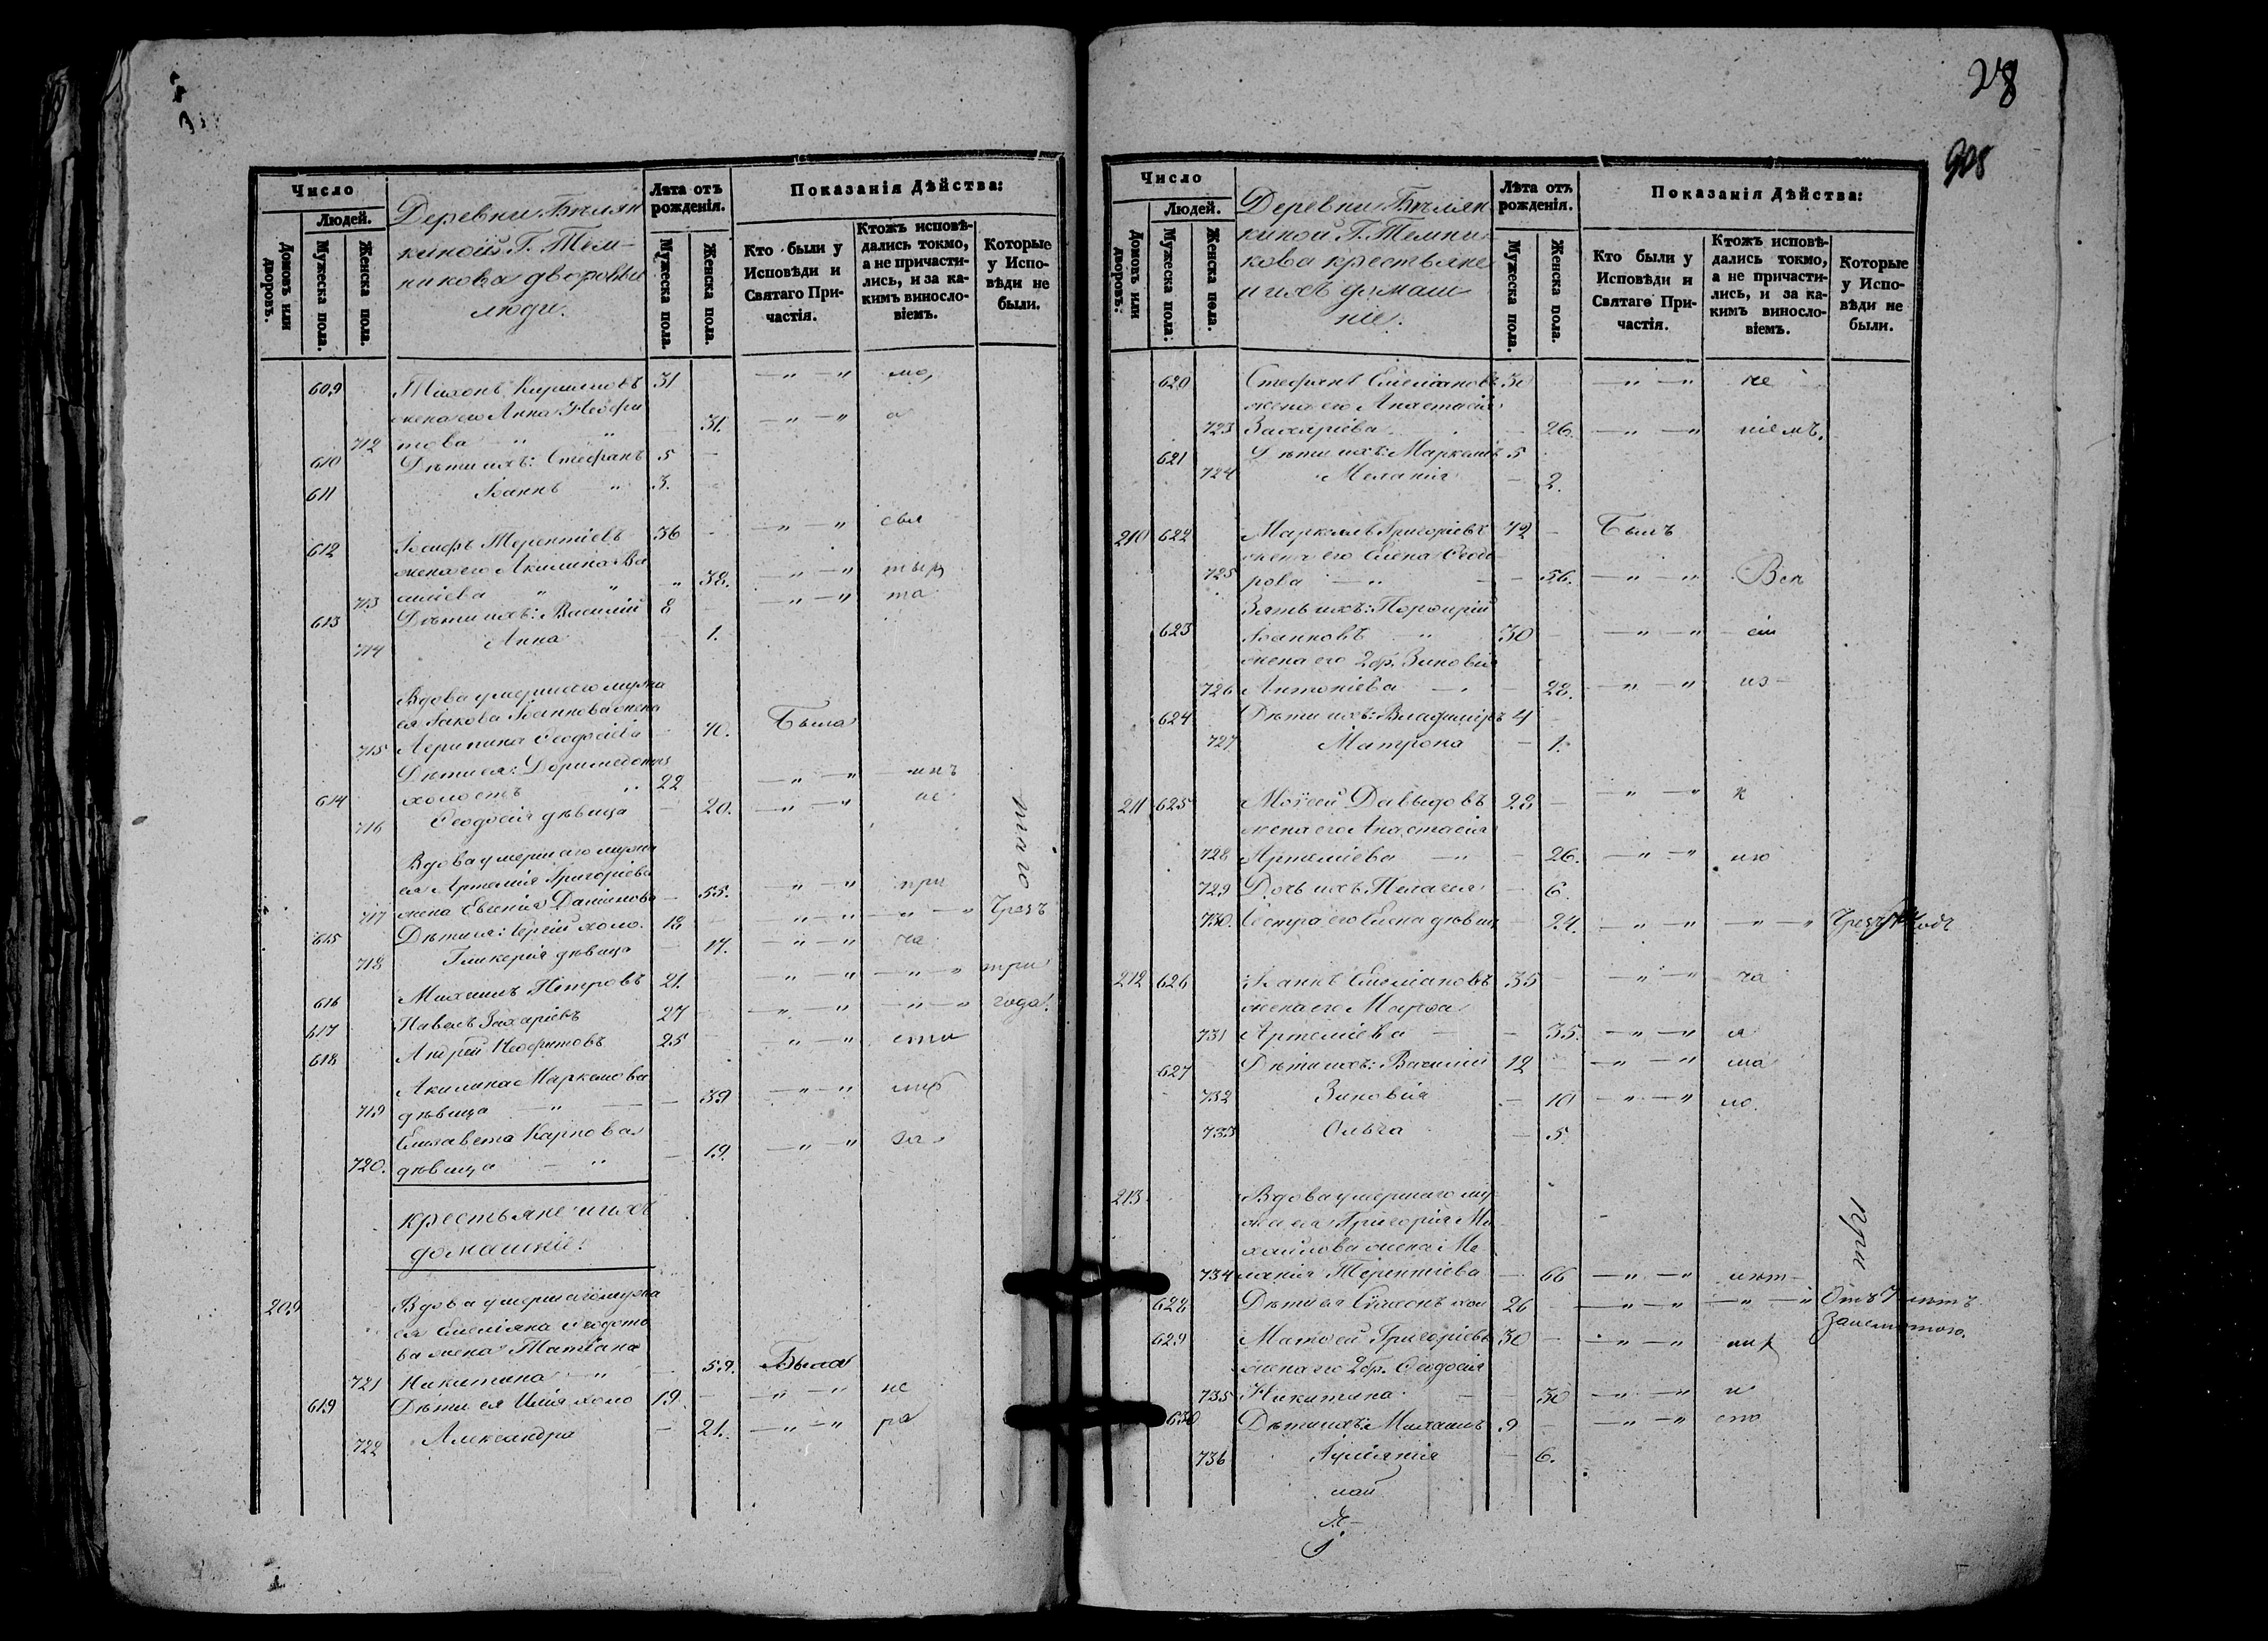 28
908
Число
Людей.
Домовъ или дворовъ.
Мужеска пола.
Женска пола.
Деревни Бѣлян
киной Г. Тем-
никова дворовые
люди.
Лѣта отъ рожденія.
Мужеска пола.
Женска пола.
Показанія Дѣйства:
Кто были у Исповѣди и Святаго При-частія.
Ктожъ исповѣ-дались токмо, а не причасти-лись, и за ка-кимъ винослo-віемъ.
Которые у Испо-вѣди не были.
609 Тихонъ Кириловъ 31 —"—"
жена его Анна Неофи
712 това " " 31. —"—"
610 Дѣти ихъ: Стефанъ 5 -
611 Іоаннъ " 3. -
612 Іосифъ Терентіевъ 36 - —"—"
жена его Акилина Ва
713 силіева " " 38. —"—"
613 Дѣти ихъ: Василій 8 - —"—" та
714 Анна - 1.
Вдова умершаго мужа
ея Іакова Іоаннова жена
715 Агрипина Ѳеодосіева - 40. Была
Дѣти ея: Доримедонтъ
614 холостъ " 22 —"—"
716 Ѳеодосія дѣвица - 20. —"—"
Вдова умершаго мужа
ея Артемія Григоріева
717 жена Евгенія Даніилова - 55. —"—" при
615 Дѣти ея: Сергій холо. 18 - —"—" —"—" Чрезъ
718 Гликерія дѣвица - 17. —"—" ча
616 Михаилъ Петровъ 21. —"—" —"—" три
617 Павелъ Захаріевъ 27 - —"—" —"—" года.
618 Андрей Неофитовъ 25 - —"—" сти
Акилина Маркелова
719 дѣвица —"— - 39 —"—"
Елизавета Карпова
720. дѣвица — " - 19. —"—" за
крестьяне и ихъ
домашніе.
209 Вдова умершаго мужа
ея Емеліяна Ѳедото
ва жена Татіана
721 Никитина — " - 59. Была
619 Дѣти ея Илія холо 19. - —"—" не
722 Александра - 21. —"—" ра
Число
Людей.
Домовъ или дворовъ:
Мужеска пола:
Женска пола.
Деревни Бѣлян
киной Г. Темни
кова крестьяне
и ихъ домаш
ніе.
Лѣта отъ рожденія.
Мужеска пола.
Женска пола.
Показанія Дѣйства:
Кто были у Исповѣди и Святаго При-частія.
Ктожъ исповѣ-дались токмо, а не причасти-лись, и за ка-кимъ винослo-віемъ.
Которые у Испо-вѣди не были.
620 Стефанъ Емеліановъ 30 —"—" не
жена его Анастасія
723 Захаріева - 26. —"—" ніемъ.
621 Дѣти ихъ: Маркеллъ 5
724 Меланія - 2.
210 622 Маркеллъ Григоріевъ 72 - Былъ
жена его Елена Ѳеодо
725 рова —"— - 56. —"—" Всѣ
Зять ихъ: Порфирій
623 Іоанновъ —" 30 - —"—" сіи
жена его 2 бр. Зиновія
726 Антоніева — - 28. —"—" из-
624 Дѣти ихъ: Владиміръ 4 -
727 Матрона - 1.
211 625 Моисей Давыдовъ 28 - —"—" к
жена его Анастасія
728 Артеміева —" - 26. —"—" ию
729 Дочь ихъ Пелагея - 6.
730. Сестра его Елена дѣвица - 24. —"—" —"—"
212 626 Іоаннъ Емеліановъ 35 - —"—" ча
жена его Марѳа
731 Артеміева — - 35. —"—" я
627 Дѣти ихъ: Василій 12 —"—" ма
732 Зиновія - 10 —"—" ло.
733 Ольга - 5.
213 Вдова умершаго му-
жа ея Григорія Ми
хайлова жена Ме
734 ланія Терентіева - 66 —"—" лѣт-
628 Дѣти ея Симеонъ хол 26 - —"—" —"—" Отъ 7 лѣтъ
629 Матѳей Григоріевъ 30 - —"—"
жена его 2 бр. Ѳеодосія
735 Никитина — - 30 —"—" и
630 Дѣти ихъ: Михаилъ 9 - —"—" сто
736 Іуліянія - 6.